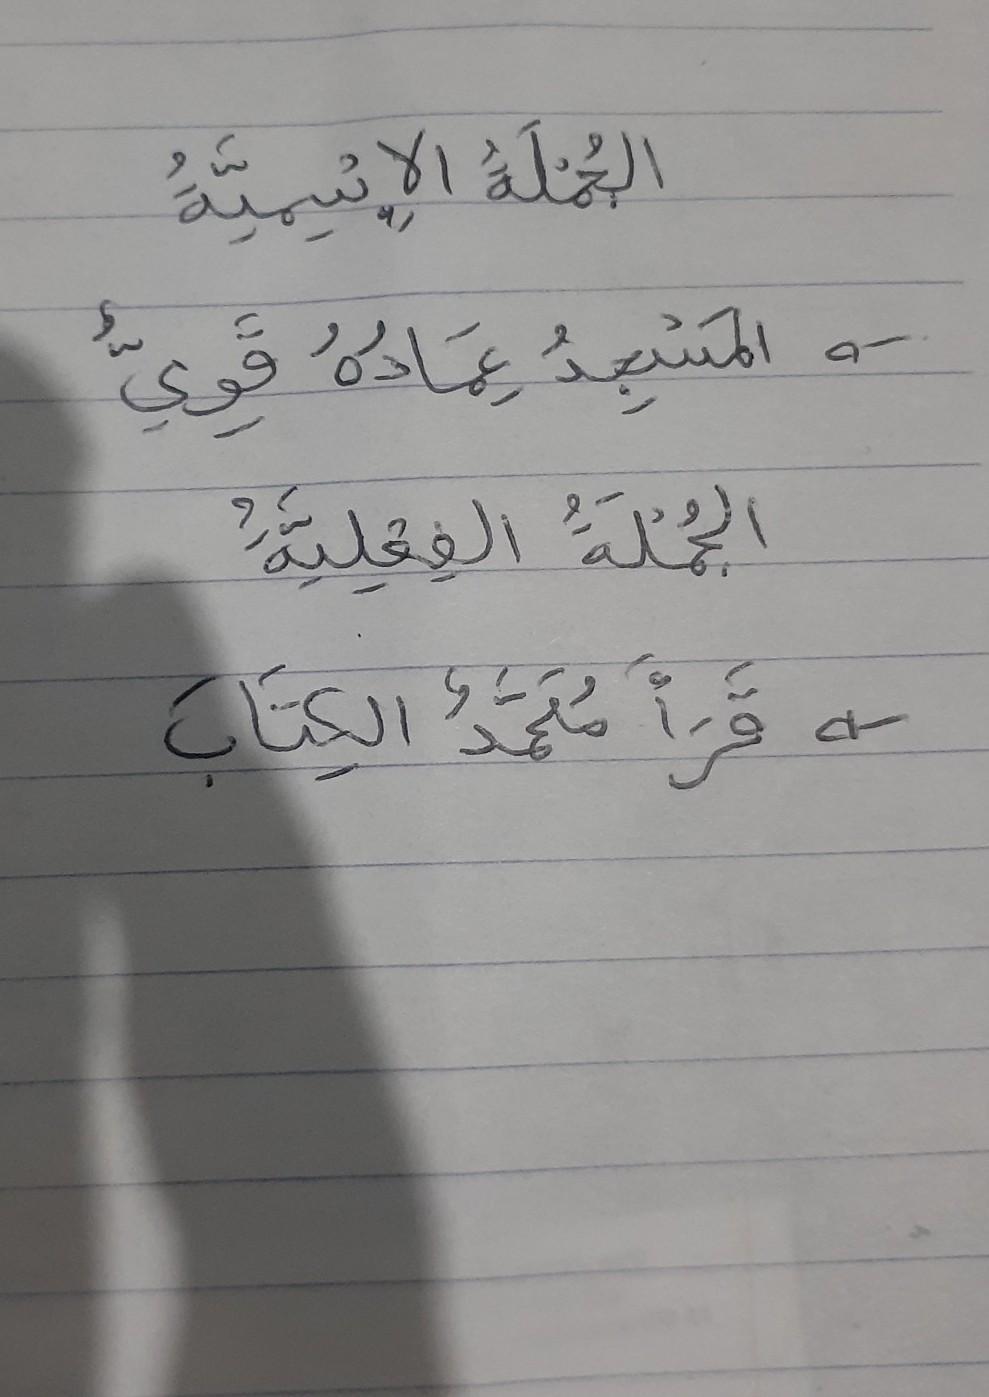 الجُمْلَةُ الإِسْمِيَّةُ
- المَسْجِدُ عِمَادُهُ قَوِيٌّ
الجُمْلَةُ الفِعْلِيَّةُ
- قَرَأَ مُحَمَّدٌ الكِتَابَ